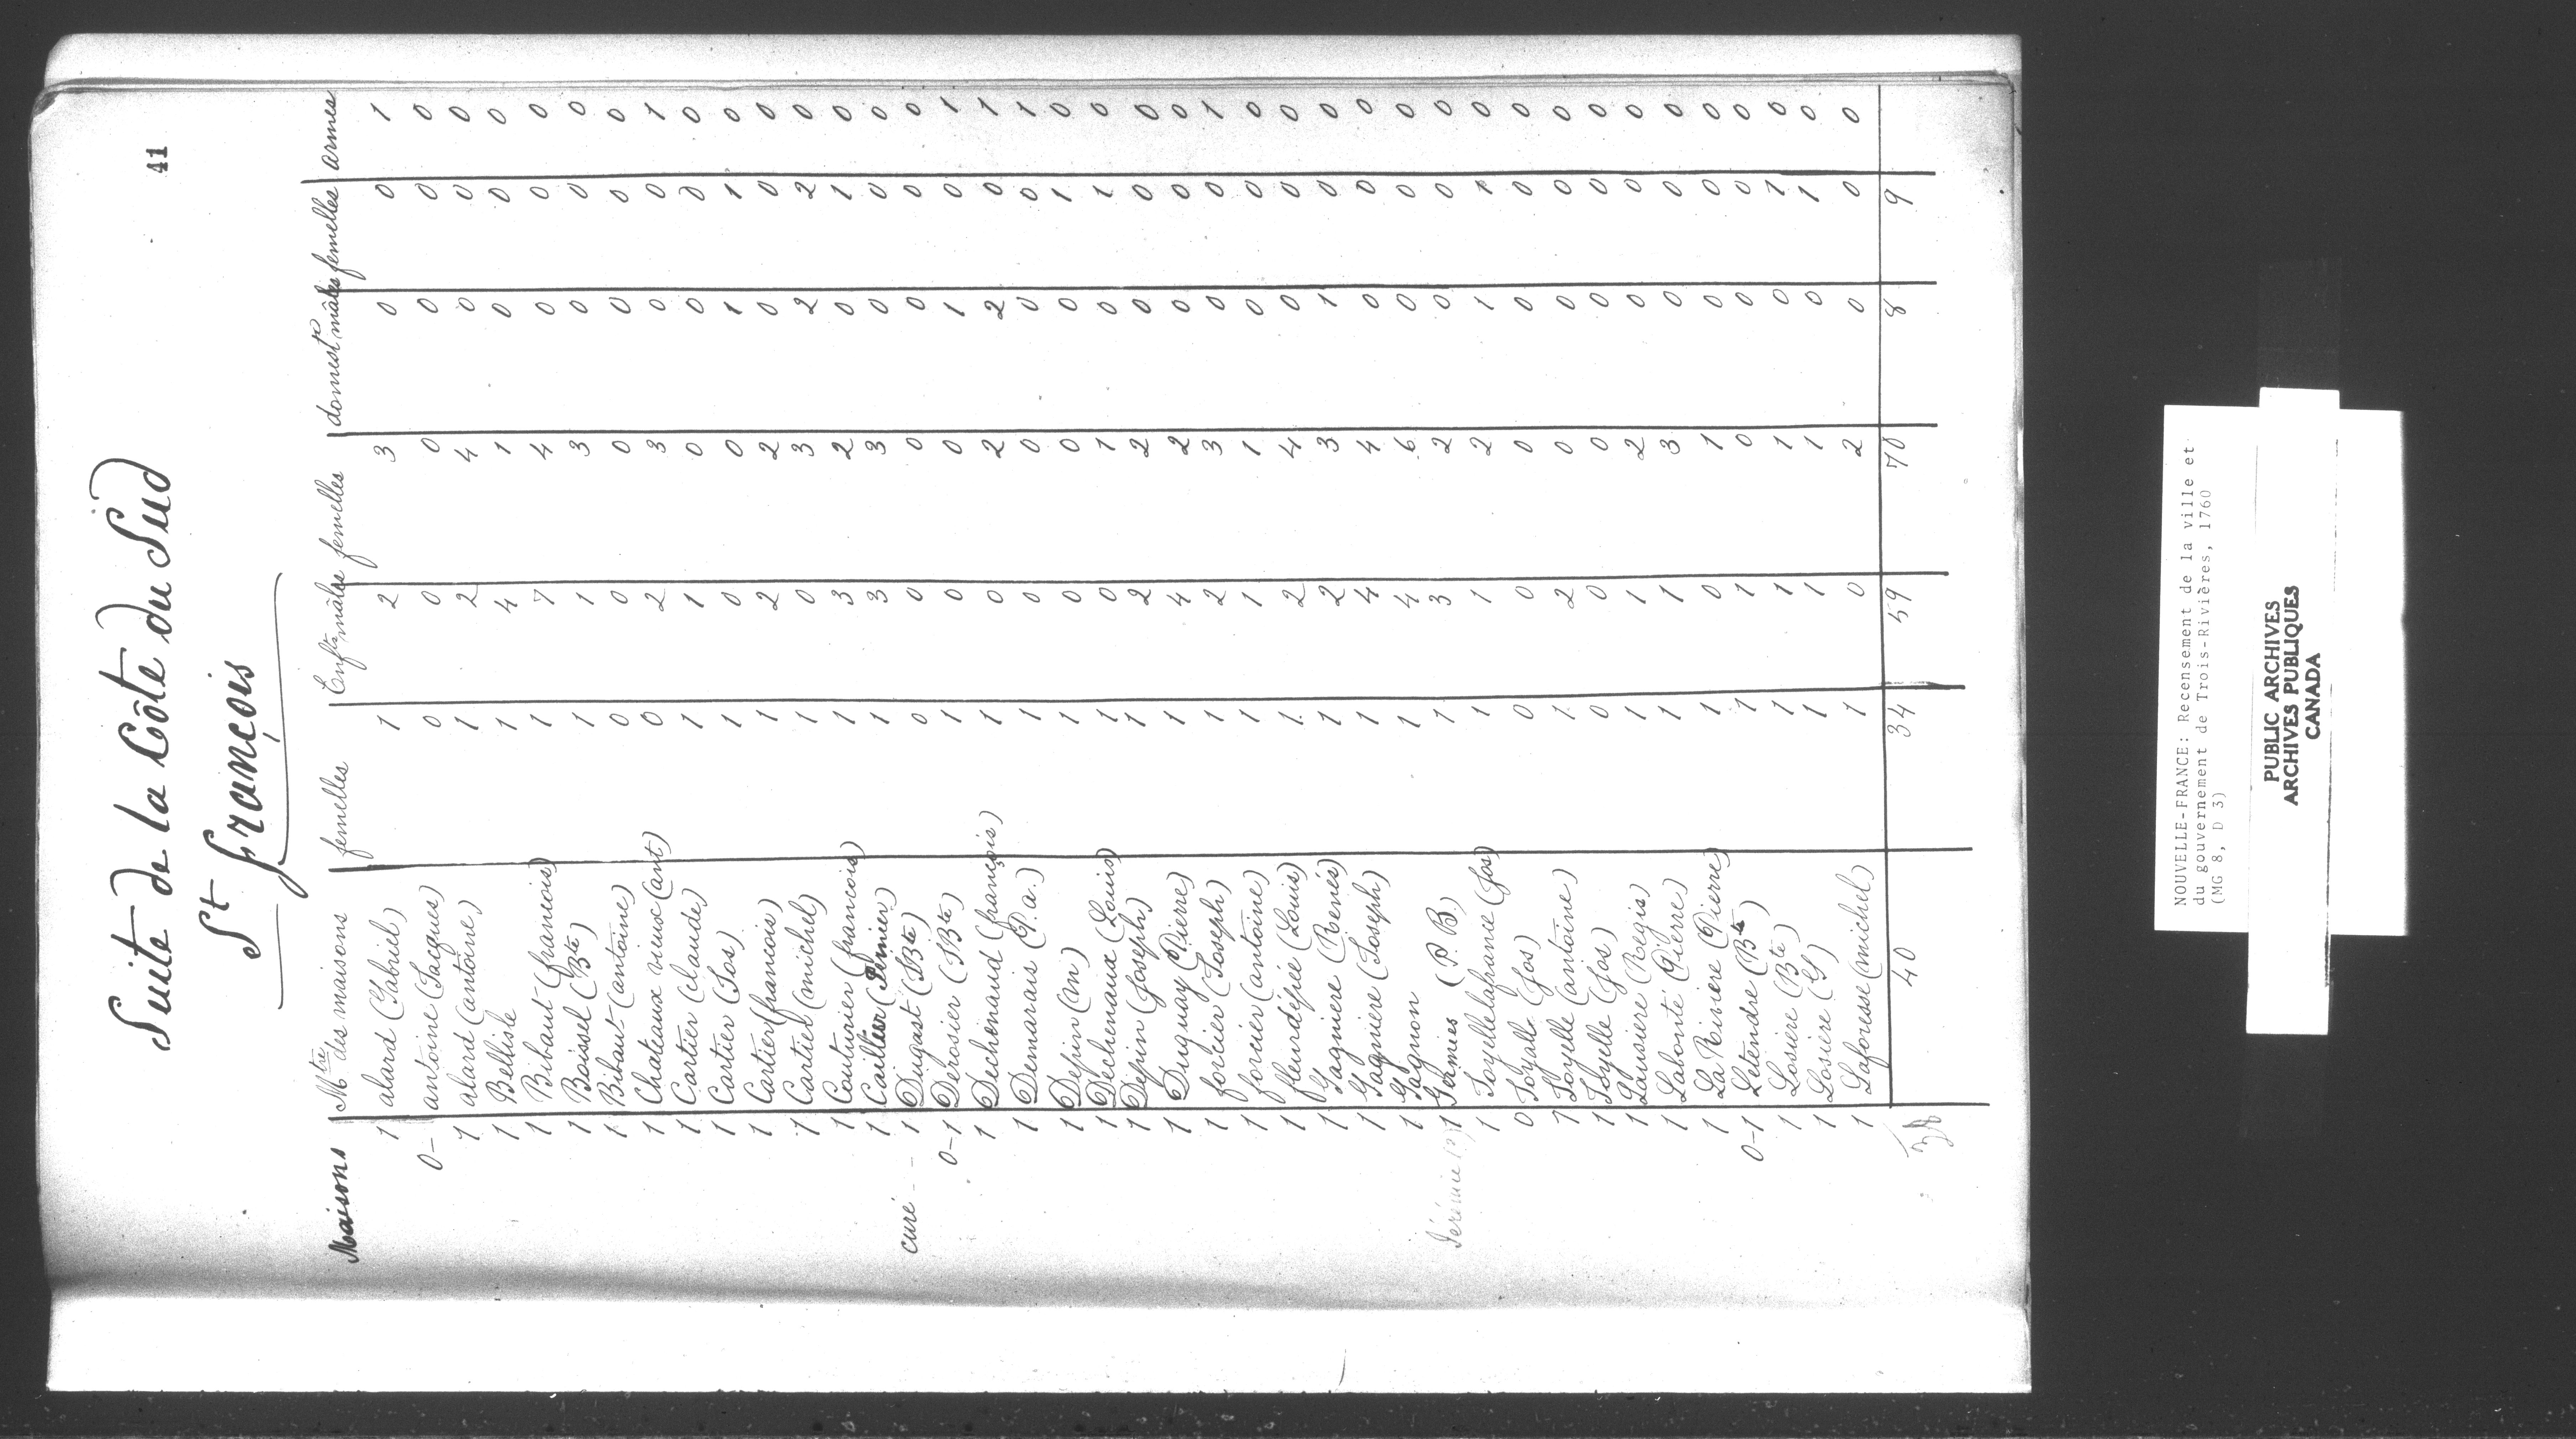 41
Suite de la Côte du Sud
St françois
Maisons Mtre des maisons femelles Enfts mâles femelles domestte mâles femelles armes
1 alard (Gabriel) 1 2 3 0 0 1
0- antoine (Jacques) 0 0 0 0 0 0
1 alard (antoine) 1 2 4 0 0 0
1 Bellisle 1 4 1 0 0 0
1 Bibaut (francois) 1 7 4 0 0 0
1 Boissel (Bte) 1 1 3 0 0 0
1 Bibaut (antoine) 0 0 0 0 0 0
1 Chateaux vieux (ant) 0 2 3 0 0 1
1 Cartier (claude) 1 1 0 0 0 0
1 Cartier (Jos) 1 0 0 1 1 0
1 Cartier (francois) 1 2 2 0 0 0
1 Cartier (michel) 1 0 3 2 2 0
1 Couturier (francois) 1 3 2 0 1 0
1 1 3 3 0 0 0
curé - - 1 Dugast (JBte) 0 0 0 0 0 0
0-1 Derosier (JBte) 1 0 0 1 0 1
1 Dechenaud (françois) 1 0 2 2 0 1
1 Demarais (P.a.) 1 0 0 0 0 1
1 Despin (m) 1 0 0 0 1 0
1 Dechenaux (Louis) 1 0 1 0 1 0
1 Despin (Joseph) 1 2 2 0 0 0
1 Duguay (Pierre) 1 4 2 0 0 0
1 forcier (Joseph) 1 2 3 0 0 1
1 forcier (antoine) 1 1 1 0 0 0
1 fleurdépée (Louis) 1 2 4 0 0 0
1 Gagniere (Renés) 1 2 3 1 0 0
1 Gagniere (Joseph) 1 4 4 0 0 0
1 Gagnon 1 4 6 0 0 0
1 (P. B.) 1 3 2 0 0 0
1 Joyelle lafrance (Jos) 1 1 2 1 1 0
0 Joyalle (Jos) 0 0 0 0 0 0
1 Joyelle (antoine) 1 2 0 0 0 0
1 Joyelle (Jos) 0 0 0 0 0 0
1 Lausiere (Regis) 1 1 2 0 0 0
1 Labonté (Pierre) 1 1 3 0 0 0
1 La Riviere (Pierre) 1 0 1 0 0 0
0-1 Letendre (Bte) 1 1 0 0 0 0
1 Losiere (Bte) 1 1 1 0 1 0
1 Losiere (G) 1 1 1 0 1 0
1 Laforesse (michel) 1 0 2 0 0 0
40 34 59 70 8 9
NOUVELLE-FRANCE: Recensement de la ville et
du gouvernement de Trois-Rivières, 1760
(MG 8, D 3)
PUBLIC ARCHIVES
ARCHIVES PUBLIQUES
CANADA